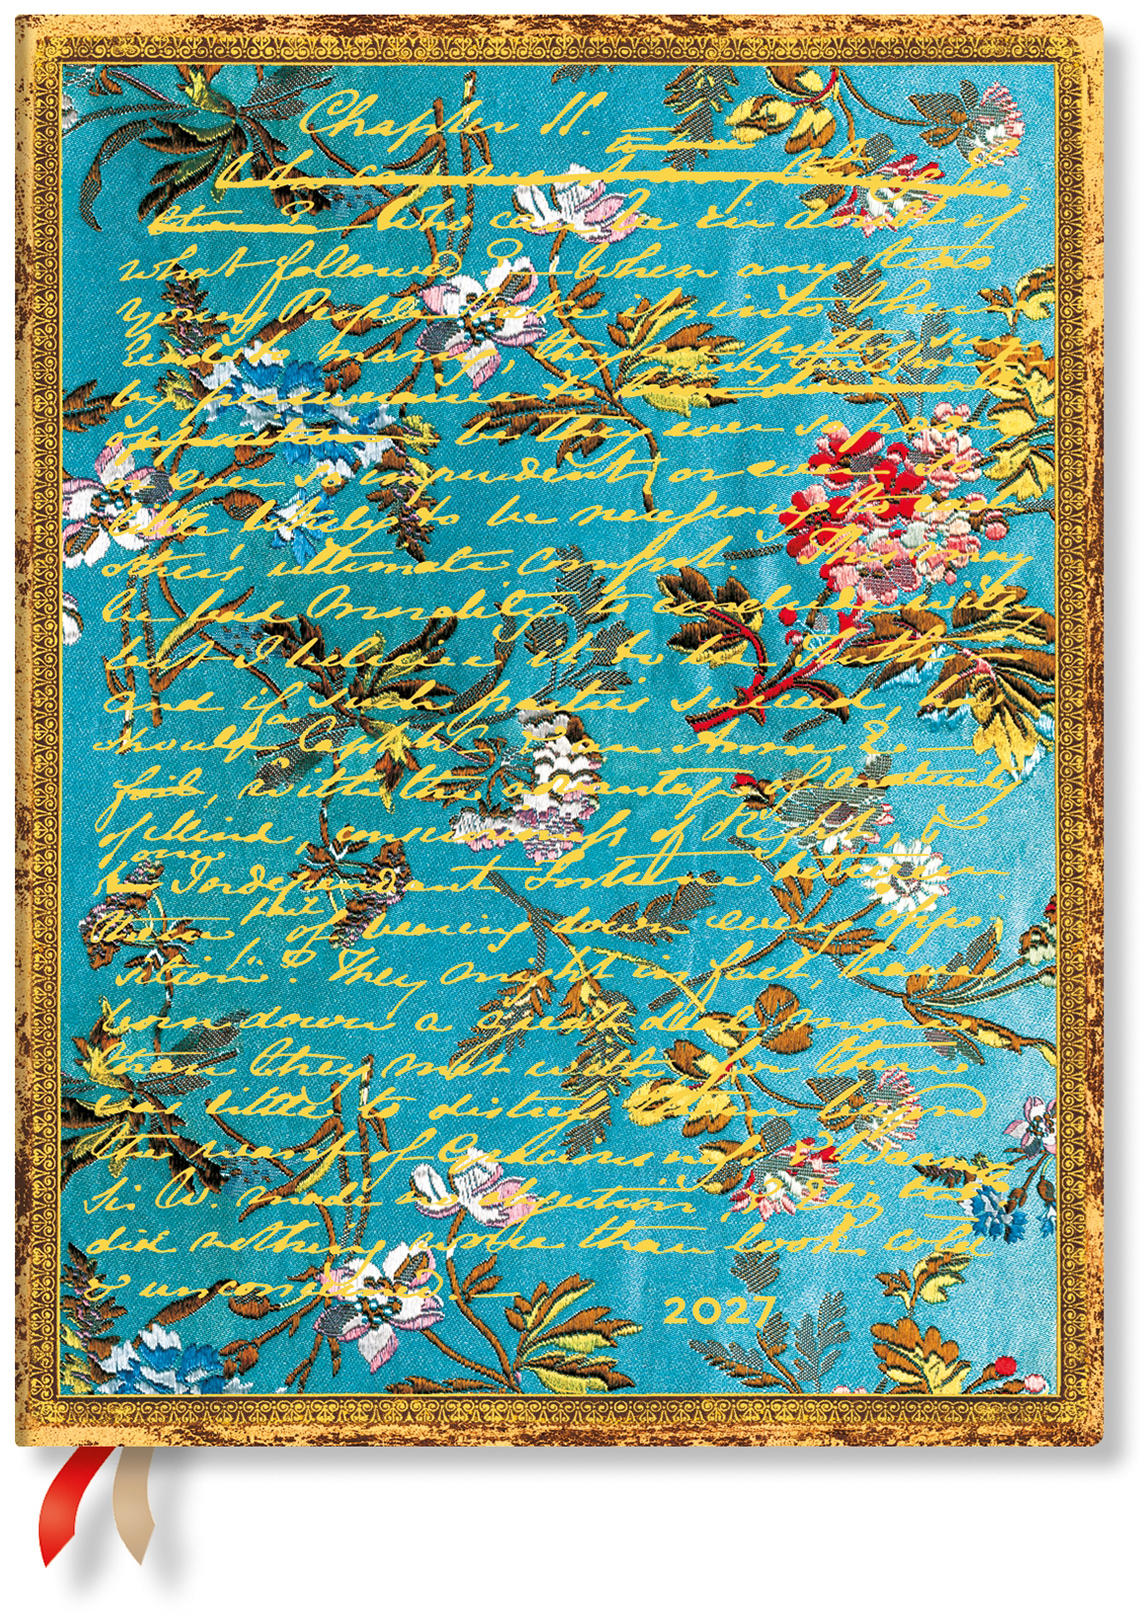 Chapter 11.
Who can be in doubt of
what followed? — When any two
Young People take it into their
heads to marry, they are pretty sure
by perseverance to carry their point
be they ever so poor,
or ever so imprudent, or ever so
little likely to be necessary to each
other's ultimate comfort. This may
be bad Morality to conclude with,
but I believe it to be Truth —
and if such parties succeed, how
should a Capt. W— & an Anne E—
fail, with the advantage of maturity
of Mind, consciousness of Right, &
one Independant Fortune between
them fail of bearing down every oppo:
:sition? They might in fact, have
born down a great deal more
than they met with, for there
was little to distress them beyond
the want of Graciousness & Warmth.
Sir W. made no objection, & Eliz:
did nothing worse than look cold
& unconcerned. —
2027